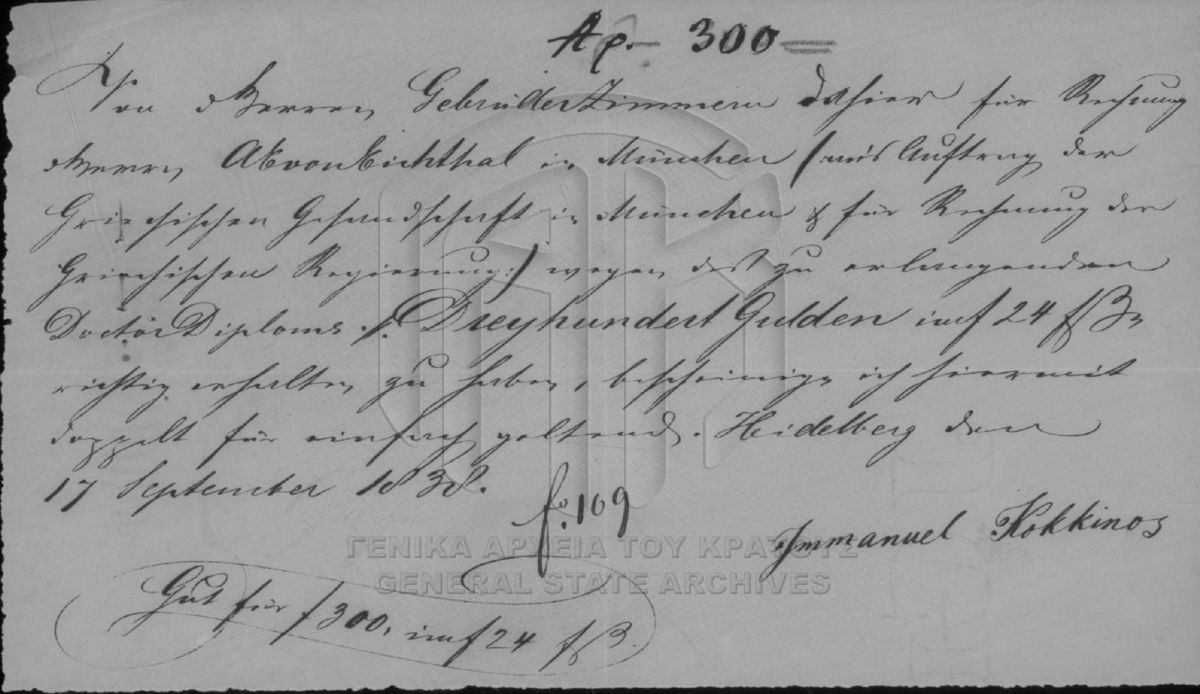 Αρ. 300
Von Herren Gebrüder Zimmern dahier für Rechnung
Herrn AEvonEichthal in München (: aus Auftrag der
Griechischen Gesandschaft in München & für Rechnung der
Griechischen Regierung :) wegen des zu erlangenden
Doctor Diploms f. Dreyhundert Gulden im f 24 fß
richtig erhalten zu haben, bescheinige ich hiermit
doppelt für einfach geltend. Heidelberg den
17 September 1838.
fo. 169
Immanuel Kokkinos
ΓΕΝΙΚΑ ΑΡΧΕΙΑ ΤΟΥ ΚΡΑΤΟΥΣ
GENERAL STATE ARCHIVES
Gut für f 300. im f 24 fß.